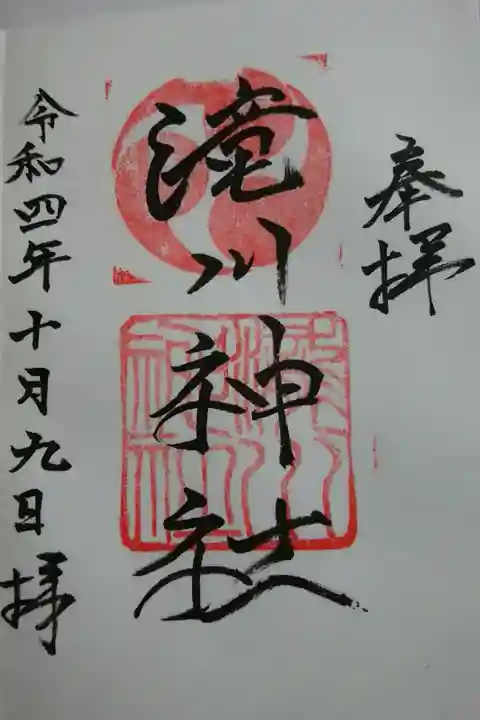 奉拝
滝川神社
令和四年十月九日拝